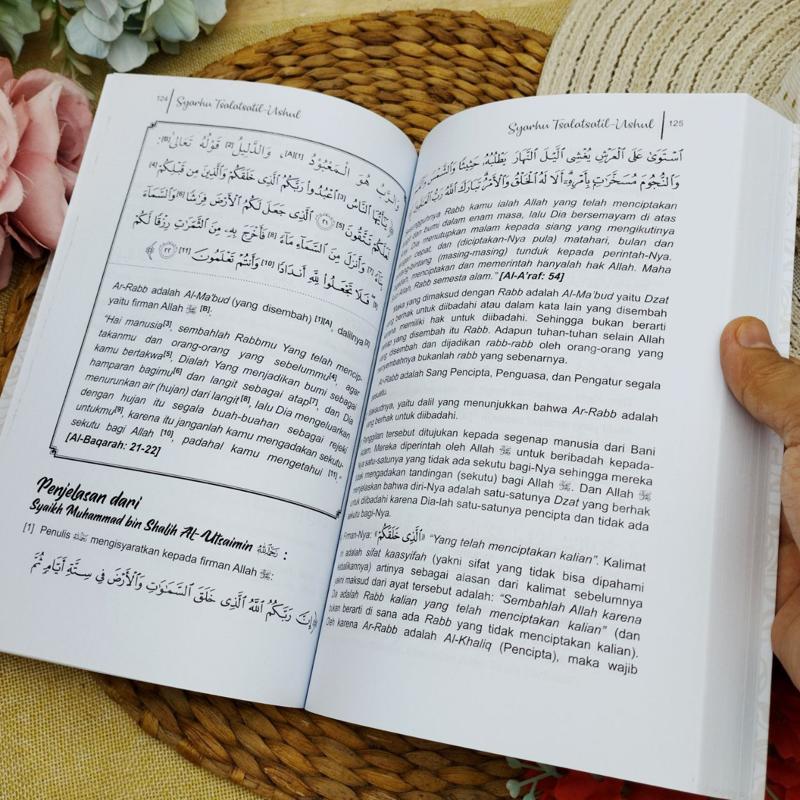 124 | Syarhu Tsalatsatil-Ushul
وَالرَّبُّ هُوَ الْمَعْبُوْدُ [1][A]، وَالدَّلِيْلُ [2] قَوْلُهُ تَعَالَى [B]:
﴿ يَٰٓأَيُّهَا ٱلنَّاسُ [3] ٱعْبُدُوا۟ رَبَّكُمُ ٱلَّذِى خَلَقَكُمْ وَٱلَّذِينَ مِن قَبْلِكُمْ [4]
لَعَلَّكُمْ تَتَّقُونَ [5] ﴿٢١﴾ ٱلَّذِى جَعَلَ لَكُمُ ٱلْأَرْضَ فِرَٰشًا [6] وَٱلسَّمَآءَ
بِنَآءً [7] وَأَنزَلَ مِنَ ٱلسَّمَآءِ مَآءً [8] فَأَخْرَجَ بِهِۦ مِنَ ٱلثَّمَرَٰتِ رِزْقًا لَّكُمْ
[9] فَلَا تَجْعَلُوا۟ لِلَّهِ أَندَادًا [10] وَأَنتُمْ تَعْلَمُونَ [11] ﴿٢٢﴾ ﴾
Ar-Rabb adalah Al-Ma'bud (yang disembah) [1][A], dalilnya [2]
yaitu firman Allah ﷻ [B].
"Hai manusia[3], sembahlah Rabbmu Yang telah mencip-
takanmu dan orang-orang yang sebelummu[4], agar
kamu bertakwa[5], Dialah Yang menjadikan bumi sebagai
hamparan bagimu[6] dan langit sebagai atap[7], dan Dia
menurunkan air (hujan) dari langit[8], lalu Dia mengeluarkan
dengan hujan itu segala buah-buahan sebagai rejeki
untukmu[9], karena itu janganlah kamu mengadakan sekutu-
sekutu bagi Allah [10], padahal kamu mengetahui [11]."
[Al-Baqarah: 21-22]
Penjelasan dari
Syaikh Muhammad bin Shalih Al-Utsaimin :
[1] Penulis mengisyaratkan kepada firman Allah ﷻ:
﴿إِنَّ رَبَّكُمُ ٱللَّهُ ٱلَّذِى خَلَقَ ٱلسَّمَٰوَٰتِ وَٱلْأَرْضَ فِى سِتَّةِ أَيَّامٍ ثُمَّ
Syarhu Tsalatsatil-Ushul | 125
ٱسْتَوَىٰ عَلَى ٱلْعَرْشِ يُغْشِى ٱلَّيْلَ ٱلنَّهَارَ يَطْلُبُهُۥ حَثِيثًا وَٱلشَّمْسَ
وَٱلنُّجُومَ مُسَخَّرَٰتٍۭ بِأَمْرِهِۦٓ أَلَا لَهُ ٱلْخَلْقُ وَٱلْأَمْرُ تَبَارَكَ ٱللَّهُ رَبُّ
Rabb kamu ialah Allah yang telah menciptakan
dan bumi dalam enam masa, lalu Dia bersemayam di atas
Dia menutupkan malam kepada siang yang mengikutinya
cepat, dan (diciptakan-Nya pula) matahari, bulan dan
(masing-masing) tunduk kepada perintah-Nya.
menciptakan dan memerintah hanyalah hak Allah. Maha
Allah, Rabb semesta alam." [Al-A'raf: 54]
yang dimaksud dengan Rabb adalah Al-Ma'bud yaitu Dzat
berhak untuk diibadahi atau dalam kata lain yang disembah
memiliki hak untuk diibadahi. Sehingga bukan berarti
yang disembah itu Rabb. Adapun tuhan-tuhan selain Allah
disembah dan dijadikan rabb-rabb oleh orang-orang yang
menyembahnya bukanlah rabb yang sebenarnya.
Ar-Rabb adalah Sang Pencipta, Penguasa, dan Pengatur segala
yaitu dalil yang menunjukkan bahwa Ar-Rabb adalah
berhak untuk diibadahi.
tersebut ditujukan kepada segenap manusia dari Bani
Mereka diperintah oleh Allah ﷻ untuk beribadah kepada-
satu-satunya yang tidak ada sekutu bagi-Nya sehingga mereka
mengadakan tandingan (sekutu) bagi Allah ﷻ. Dan Allah ﷻ
bahwa diri-Nya adalah satu-satunya Dzat yang berhak
untuk diibadahi karena Dia-lah satu-satunya pencipta dan tidak ada
sekutu bagi-Nya.
Firman-Nya: ﴿ٱلَّذِى خَلَقَكُمْ﴾ "Yang telah menciptakan kalian". Kalimat
adalah sifat kaasyifah (yakni sifat yang tidak bisa dipahami
kebalikannya) artinya sebagai alasan dari kalimat sebelumnya
maksud dari ayat tersebut adalah: "Sembahlah Allah karena
Dia adalah Rabb kalian yang telah menciptakan kalian" (dan
bukan berarti di sana ada Rabb yang tidak menciptakan kalian).
Oleh karena Ar-Rabb adalah Al-Khaliq (Pencipta), maka wajib